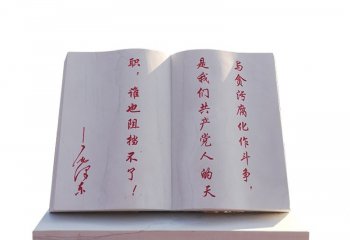 与贪污腐化作斗争，
是我们共产党人的天
职，谁也阻挡不了！
—毛泽东